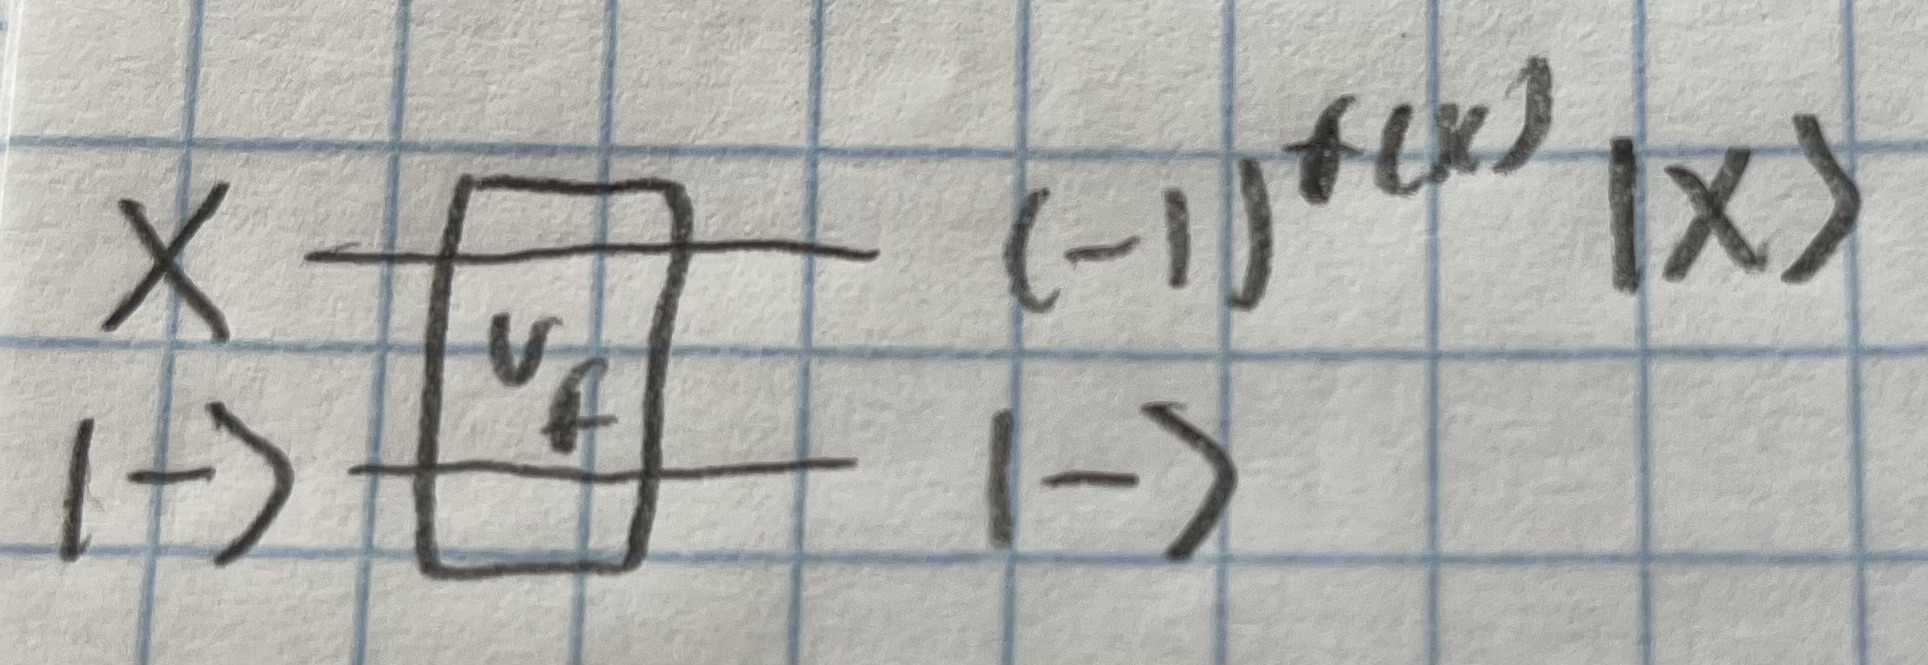 X U_f (-1)^{f(x)} |X⟩
|-⟩ |-⟩